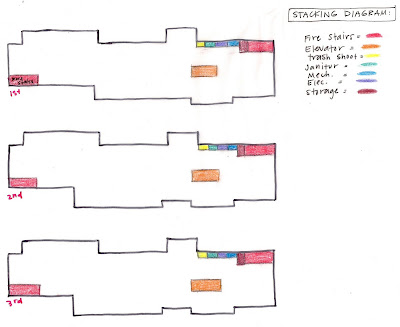 STACKING DIAGRAM:
Fire Stairs =
Elevator =
trash shoot =
Janitor =
Mech. =
Elec. =
Storage =
Fire
Stairs
1st
2nd
3rd